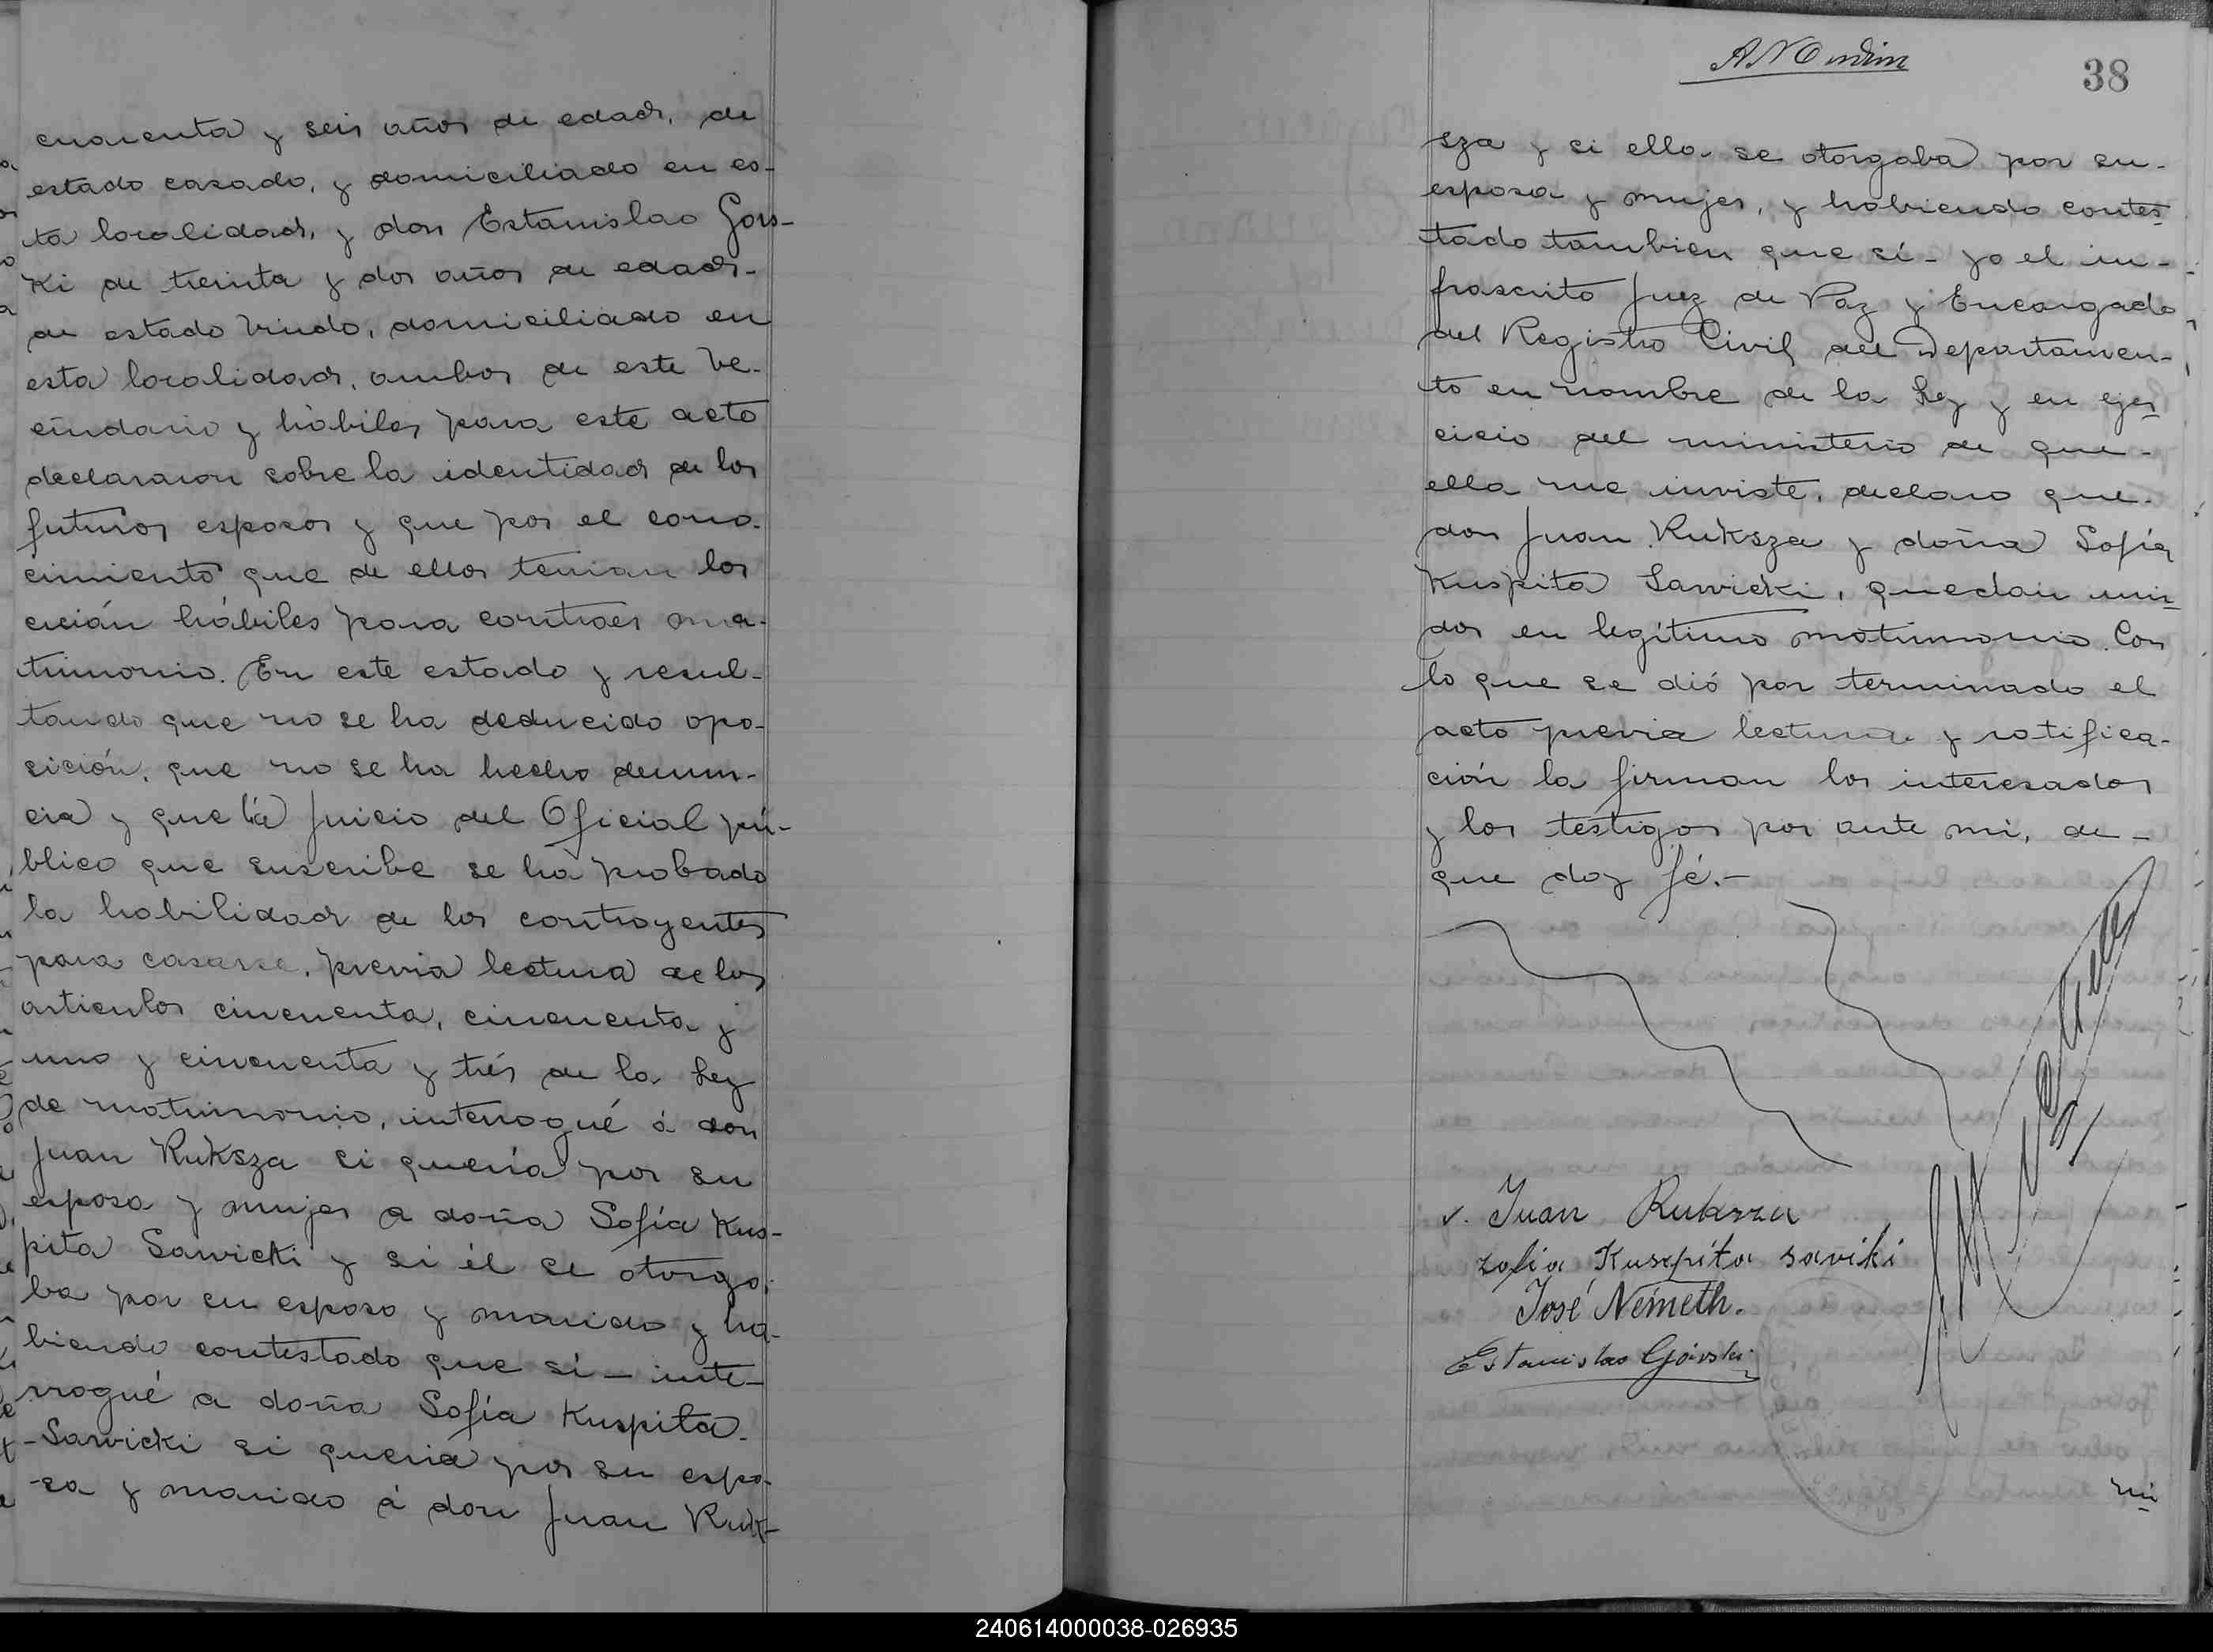 cuarenta y seis años de edad, de
estado casado, y domiciliado en es-
ta localidad, y don Estanislao Gors-
ki de treinta y dos años de edad-
de estado viudo, domiciliado en
esta localidad, ambos de este ve-
cindario y hábiles para este acto
declararon sobre la identidad de los
futuros esposos y que por el cono-
cimiento que de ellos tenian los
creián hábiles para contraer ma-
trimonio. En este estado y resul-
tando que no se ha deducido opo-
sición, que no se ha hecho denun-
cia y que á juicio del Oficial pú-
blico que suscribe se ha probado
la habilidad de los contrayentes
para casarse, previa lectura de los
articulos cincuenta, cincuenta y
uno y cincuenta y trés de la Ley
de matrimonio, interrogué á don
Juan Ruksza si quería por su
esposa y mujer a doña Sofía Kus-
pita Sawicki y si él se otorga-
ba por su esposo y marido y ha-
biendo contestado que sí - inte-
rrogué a doña Sofía Kuspita-
-Sawicki si queria por su espo-
-so y marido á don Juan Ruk-
38
sza y si ella se otorgaba por su-
esposa y mujer, y habiendo contes-
tado tambien que sí - yo el in-
frascrito Juez de Paz y Encargado
del Registro Civil del Departamen-
to en nombre de la Ley y en ejer-
cicio del ministerio de que-
ella me inviste, declaro que-
don Juan Ruksza y doña Sofía
Kuspita Sawicki, quedan uni-
dos en legítimo matrimonio. Con
lo que se dió por terminado el
acto previa lectura y ratifica-
ción la firman los interesados
y los testigos por ante mi, de-
que doy fé.-
Juan Ruksza
Zofia Kuszpita saviki
José Németh.
Estanislao Górski
mi
240614000038-026935